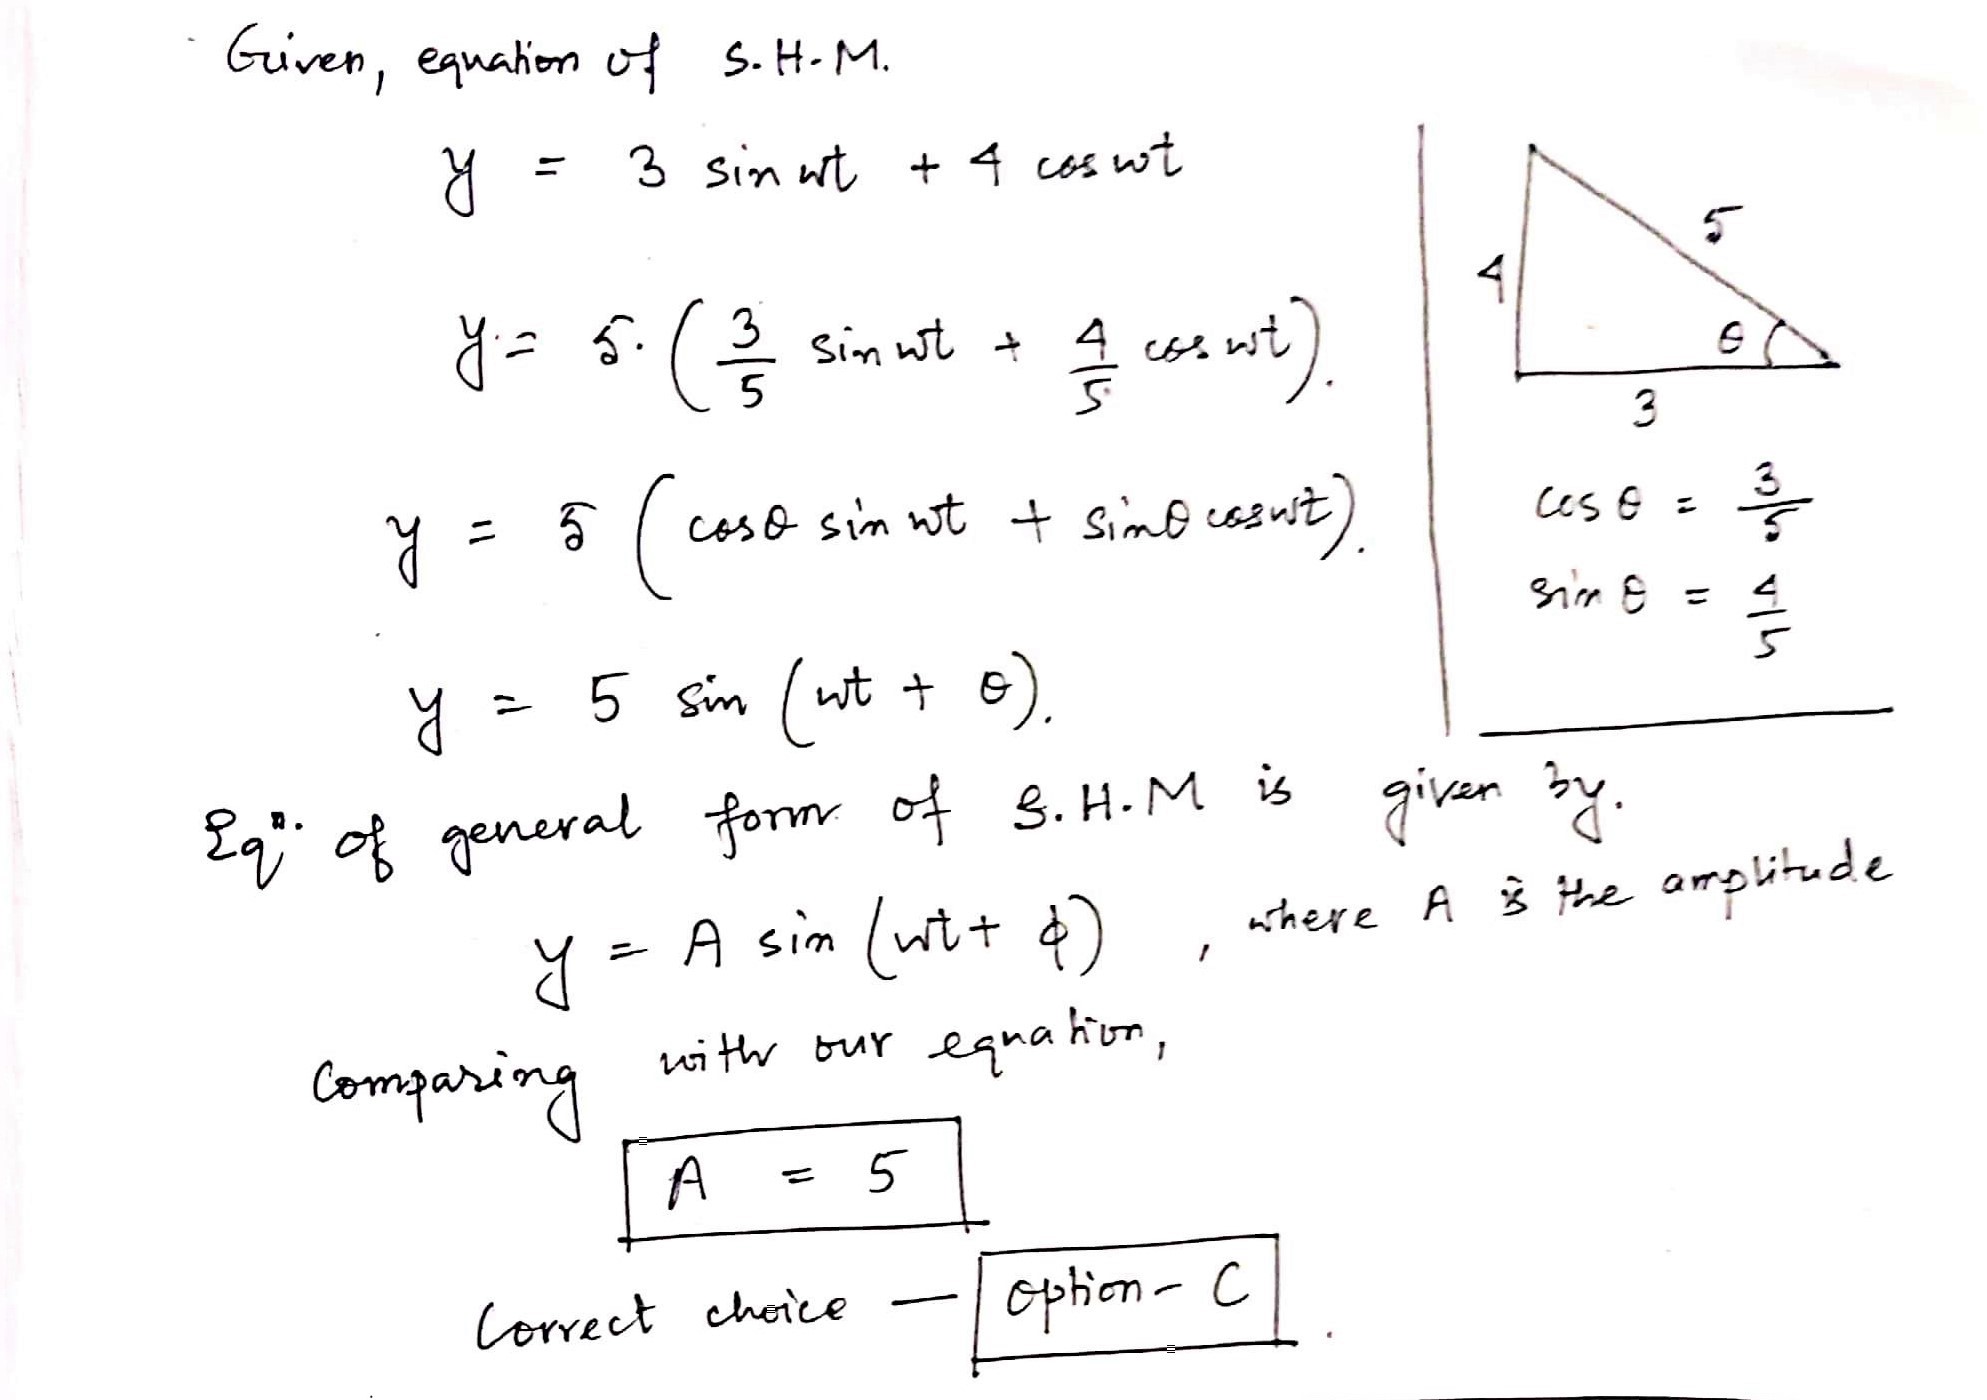 Given, equation of S.H.M.
y = 3 sin wt + 4 cos wt
y = 5. ( 3/5 sin wt + 4/5 cos wt ).
y = 5 ( cos θ sin wt + sin θ cos wt ).
y = 5 sin ( wt + θ ).
4
5
θ
3
cos θ = 3/5
sin θ = 4/5
Eqn. of general form of S.H.M is given by.
y = A sin ( wt + ϕ ) , where A is the amplitude
Comparing with our equation,
A = 5
Correct choice — option - C .